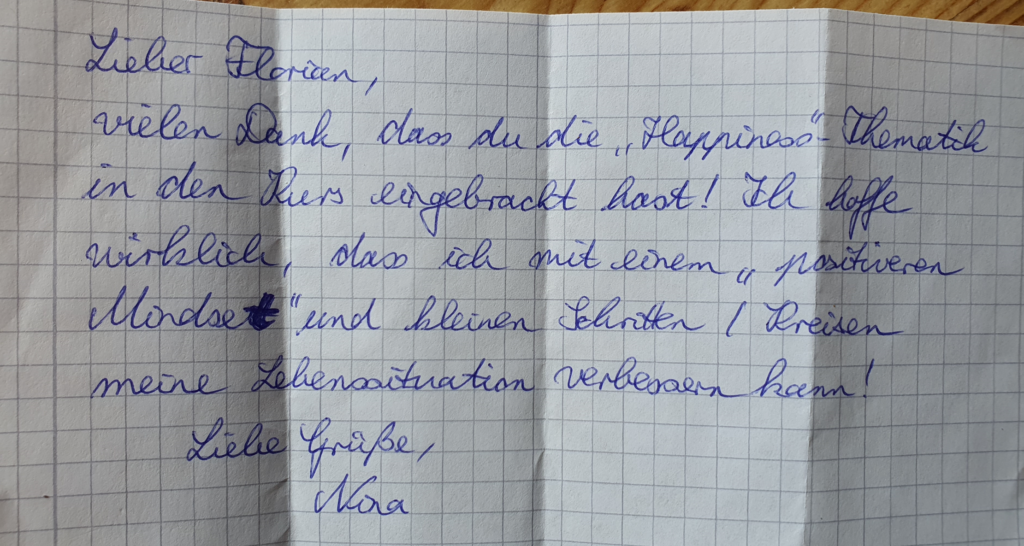 Lieber Florian,
vielen Dank, dass du die „Happiness"-Thematik
in den Kurs eingebracht hast! Ich hoffe
wirklich, dass ich mit einem „positiveren
Mindset" und kleinen Schritten / Kreisen
meine Lebenssituation verbessern kann!
Liebe Grüße,
Nora